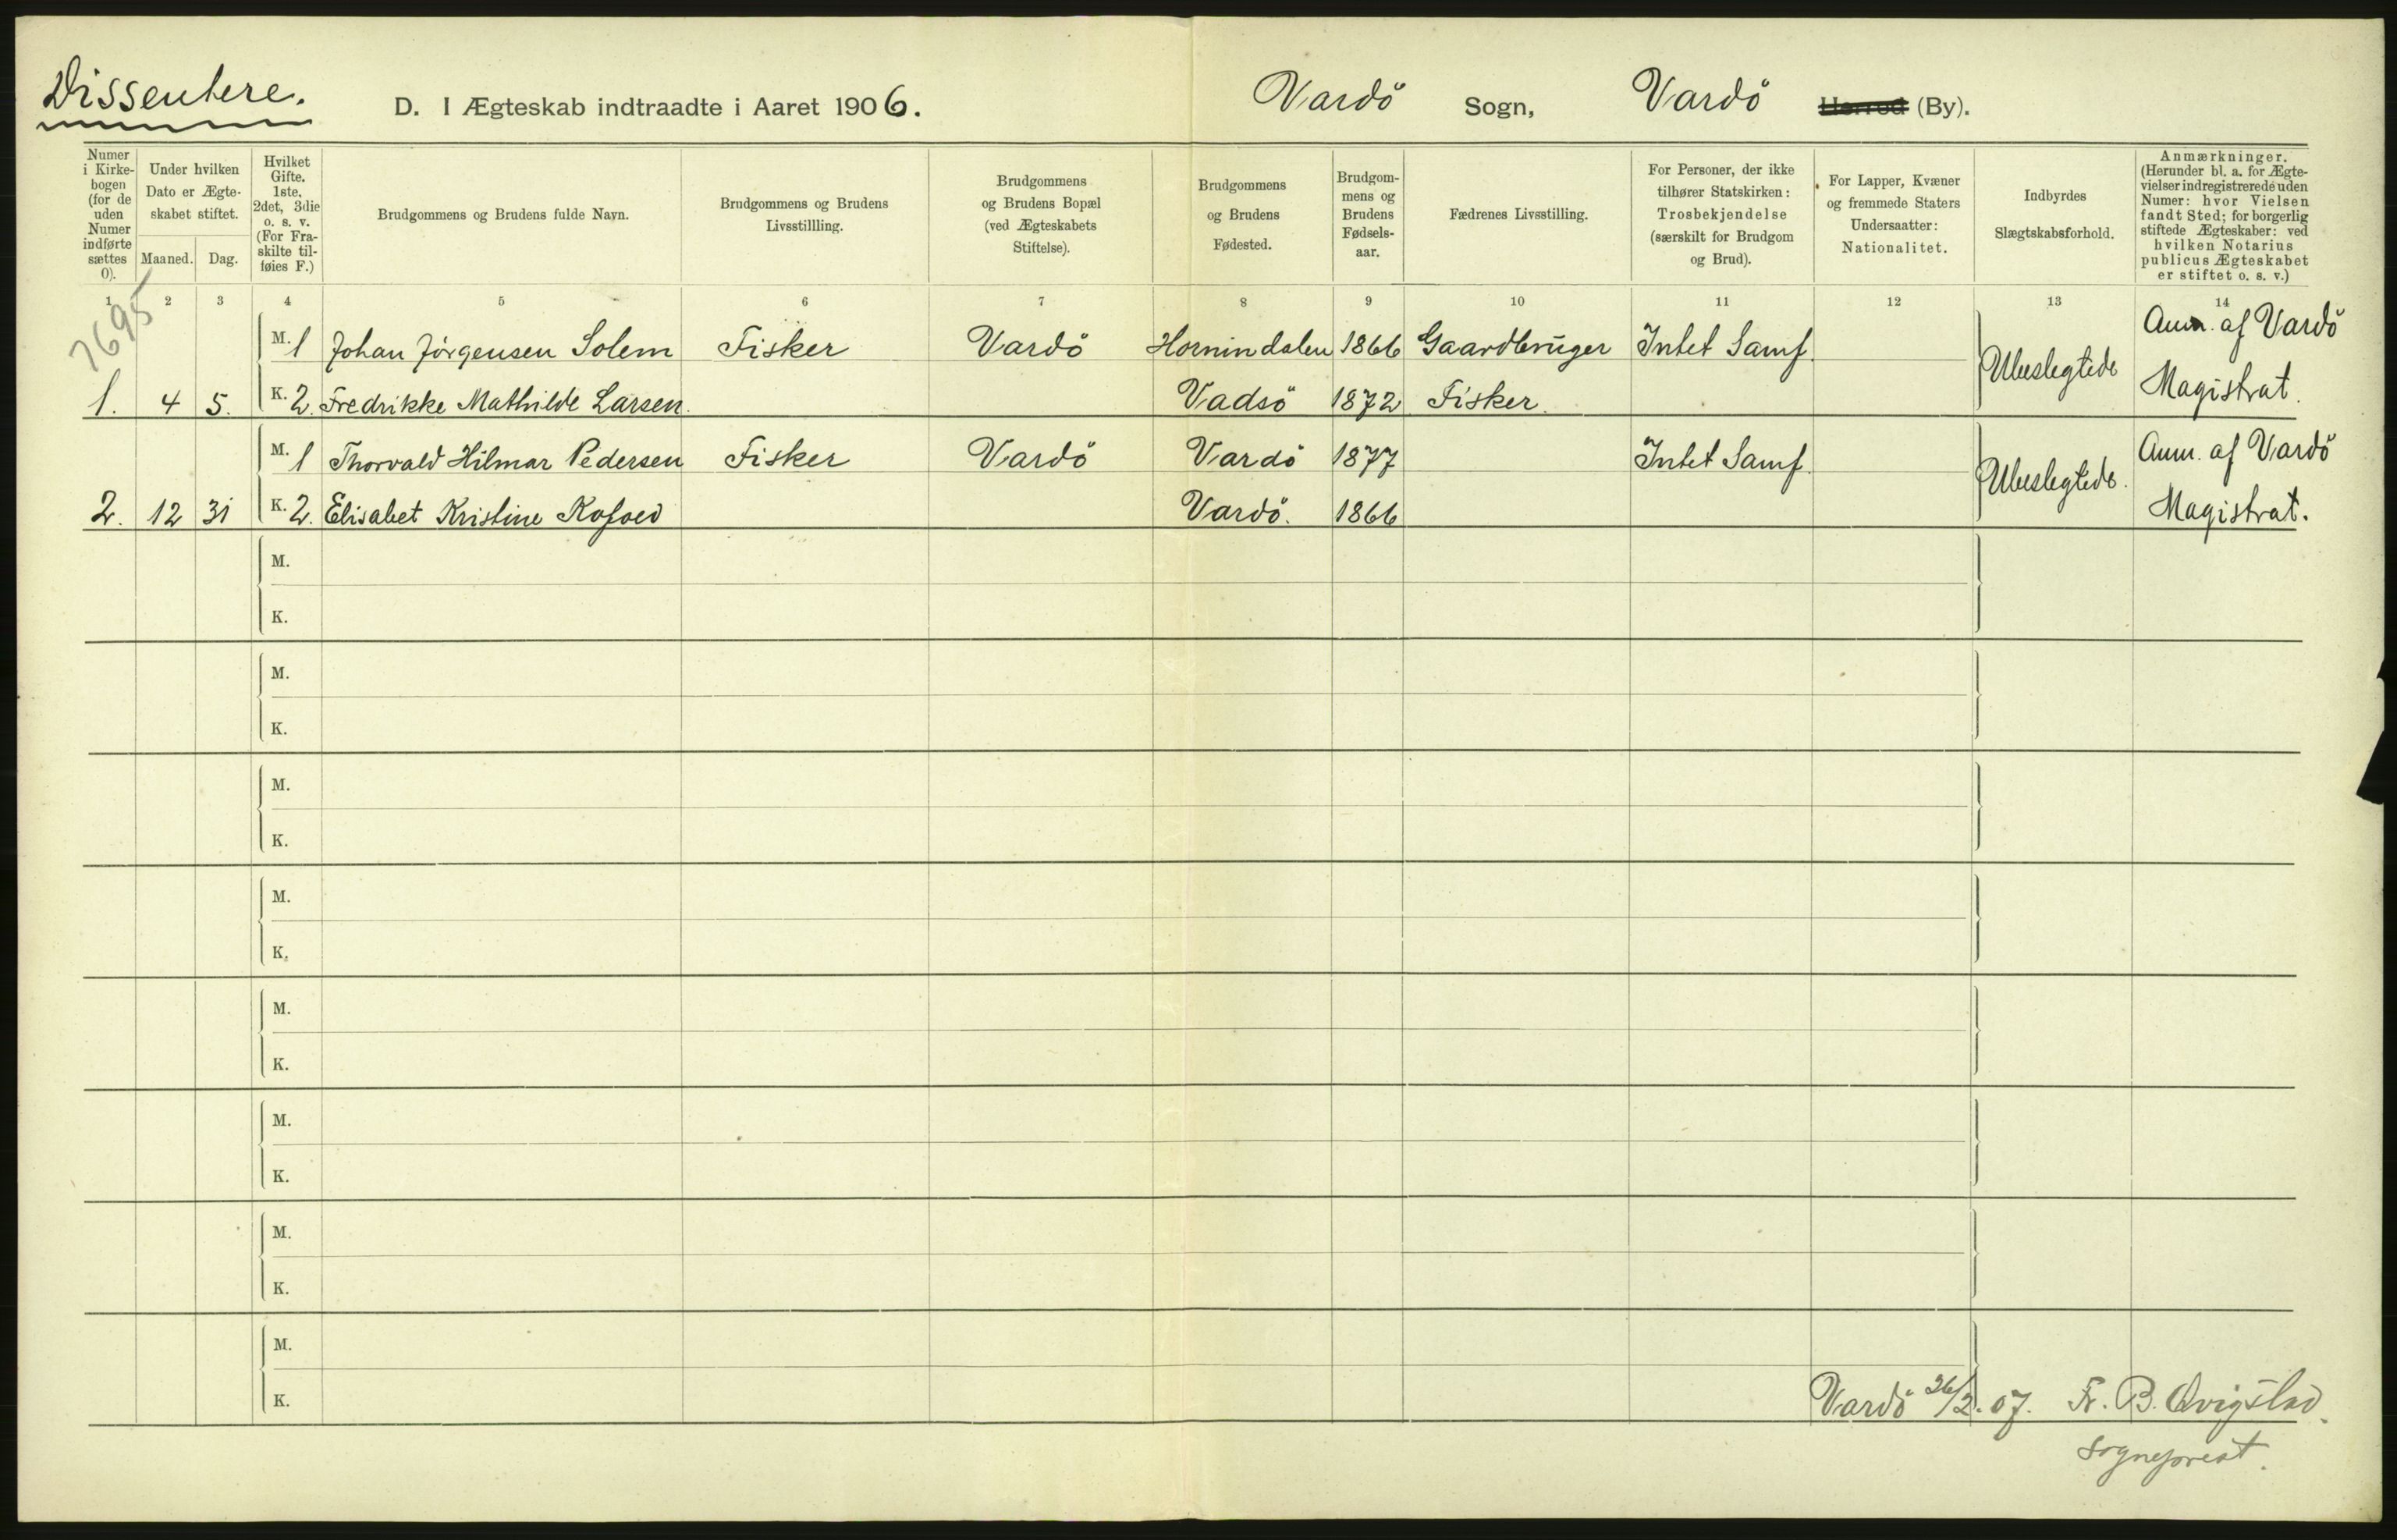 Dissentere.
D. I Ægteskab indtraadte i Aaret 1906.
Vardö Sogn, Vardö Herred (By).
Numer i Kirke-bogen (for de uden Numer indførte sættes 0).
Under hvilken Dato er Ægte-skabet stiftet.
Maaned. Dag.
Hvilket Gifte. 1ste, 2det, 3die o. s. v. (For Fra-skilte til-føies F.)
Brudgommens og Brudens fulde Navn.
Brudgommens og Brudens Livsstillling.
Brudgommens og Brudens Bopæl (ved Ægteskabets Stiftelse).
Brudgommens og Brudens Fødested.
Brudgom-mens og Brudens Fødsels-aar.
Fædrenes Livsstilling.
For Personer, der ikke tilhører Statskirken: Trosbekjendelse (særskilt for Brudgom og Brud).
For Lapper, Kvæner og fremmede Staters Undersaatter: Nationalitet.
Indbyrdes Slægtskabsforhold.
Anmærkninger. (Herunder bl. a. for Ægte-vielser indregistrerede uden Numer: hvor Vielsen fandt Sted; for borgerlig stiftede Ægteskaber: ved hvilken Notarius publicus Ægteskabet er stiftet o. s. v.)
1 2 3 4 5 6 7 8 9 10 11 12 13 14
7695
M. 1 Johan Jörgensen Solem Fisker Vardö Hornindalen 1866 Gaardbruger Intet Samf. Ubeslegtede Anm. af Vardö
1. 4 5. K. 2. Fredrikke Mathilde Larsen. Vadsö 1872 Fisker. Magistrat.
M. 1 Thorvald Hilmar Pedersen Fisker Vardö Vardö 1877 Intet Samf. Ubeslegtede. Anm. af Vardö
2. 12 31 K. 2. Elisabet Kristine Kofoed Vardö. 1866 Magistrat.
M.
K.
M.
K.
M.
K.
M.
K.
M.
K.
M.
K.
M.
K.
M.
K.
Vardö 26/2.07. Fr. B. Qvigstad.
Sogneprest.